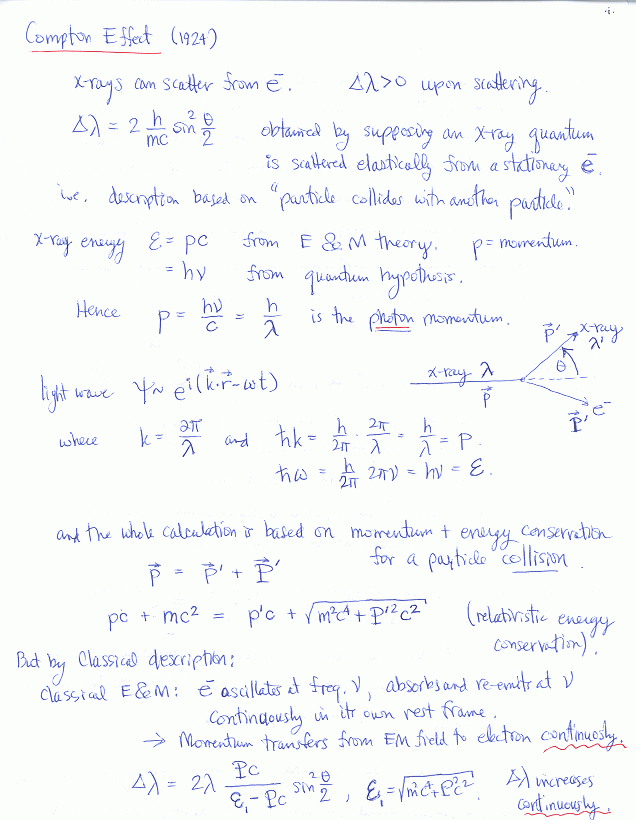 ·i·
Compton Effect (1924)
x-rays can scatter from e⁻. Δλ>0 upon scattering.
Δλ = 2 h/mc sin² θ/2 obtained by supposing an x-ray quantum
is scattered elastically from a stationary e⁻.
i.e. description based on "particle collides with another particle."
x-ray energy ℰ = pc from E & M theory. p = momentum.
= hν from quantum hypothesis.
Hence p = hν/c = h/λ is the photon momentum.
p⃗' x-ray λ'
θ
x-ray λ
p⃗
P⃗' e⁻
light wave ψ ~ e^i(k⃗·r⃗-ωt)
where k = 2π/λ and ħk = h/2π · 2π/λ = h/λ = p.
ħω = h/2π 2πν = hν = ℰ.
and the whole calculation is based on momentum + energy conservation
for a particle collision.
p⃗ = p⃗' + P⃗'
pc + mc² = p'c + √(m²c⁴ + P'²c²) (relativistic energy
conservation).
But by Classical description:
Classical E&M: e⁻ oscillates at freq. ν, absorbs and re-emits at ν
continuously in its own rest frame.
→ Momentum transfers from EM field to electron continuously.
Δλ = 2λ Pc/(ℰ₁ - Pc) sin² θ/2, ℰ₁ = √(m²c⁴+P²c²). Δλ increases
continuously.